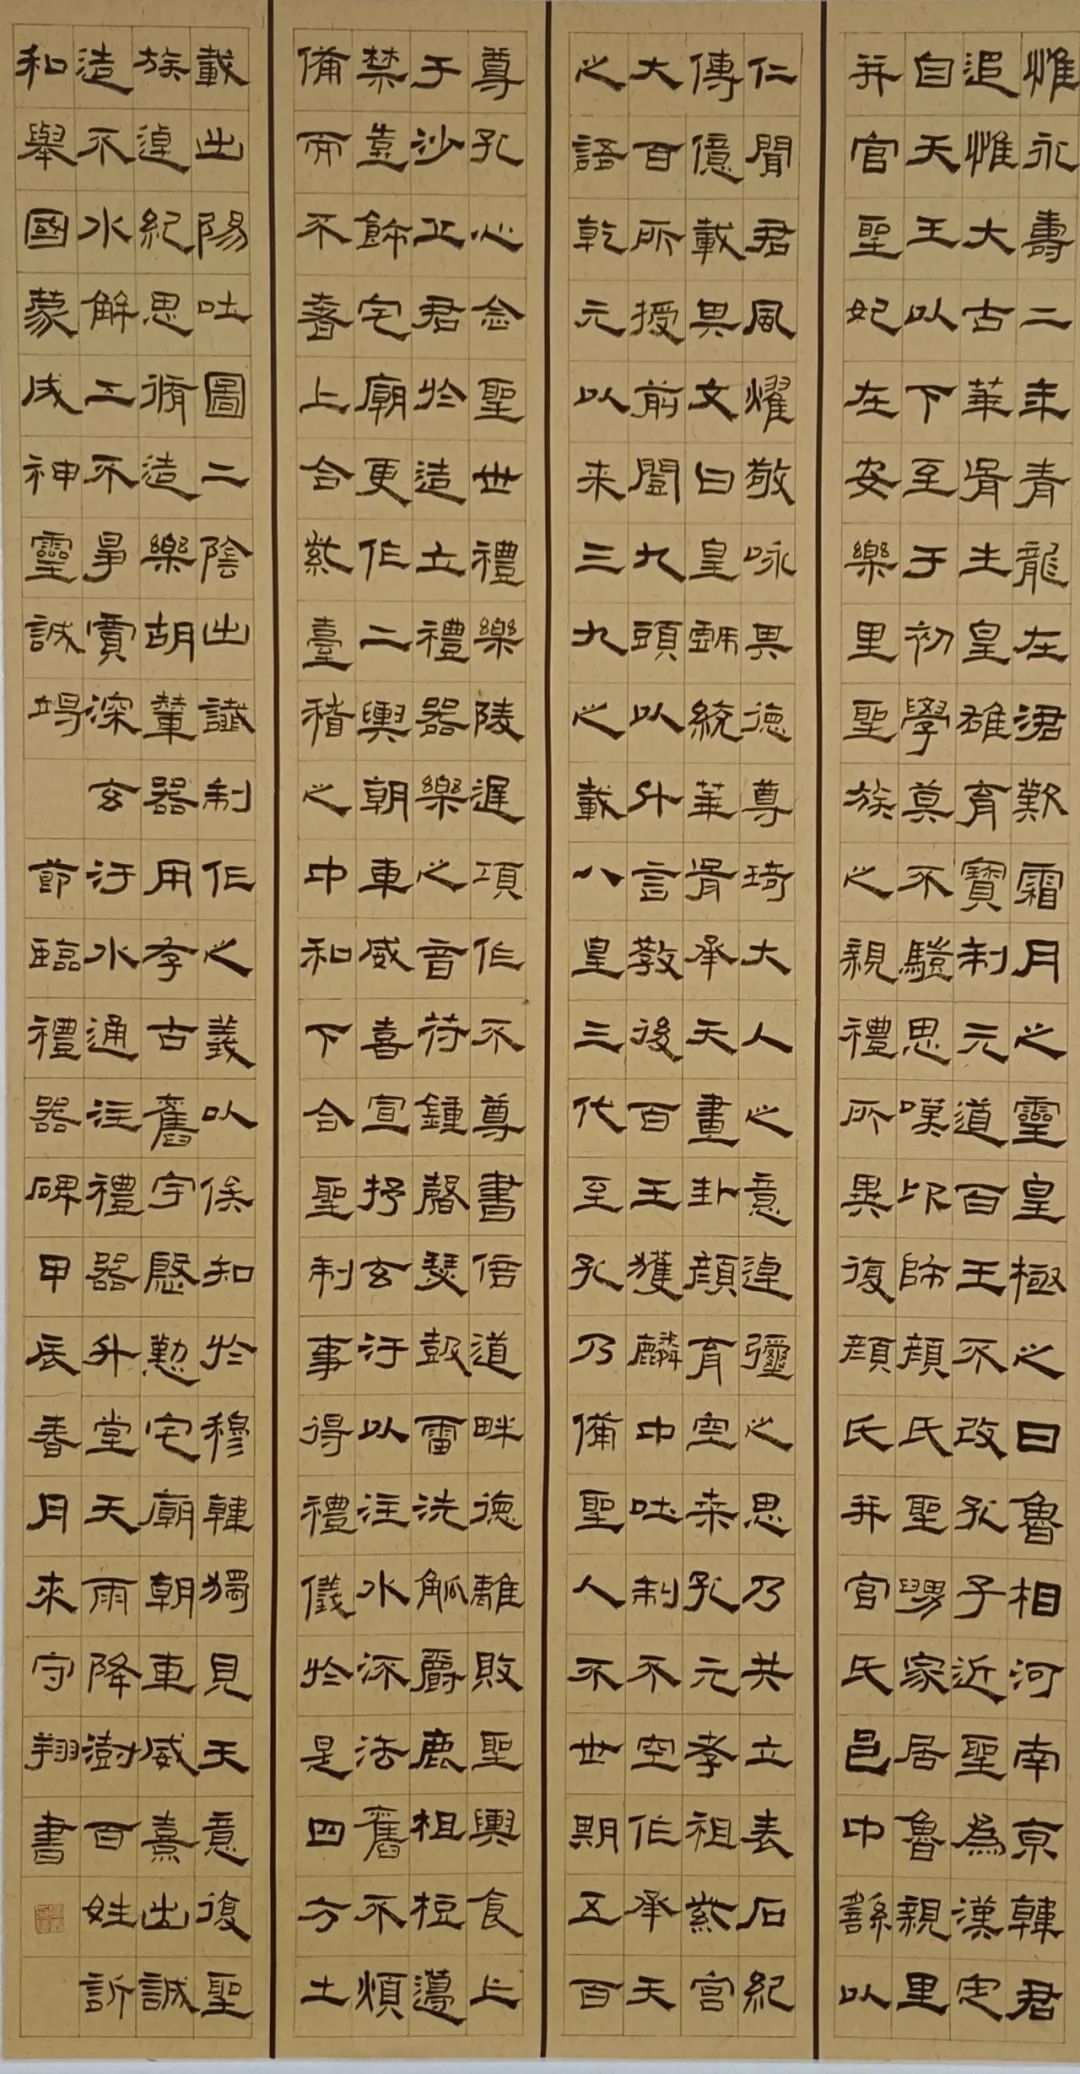 惟永壽二年青龍在涒歎霜月之靈皇極之日魯相河南京韓君
追惟大古華胥生皇雄育寶制元道百王不改孔子近聖為漢定
自天王以下至于初學莫不驥思嘆卬師顏氏聖舅家居魯親里
并官聖妃在安樂里聖族之親禮所異復顏氏并官氏邑中繇以
仁聞君風燿敬咏其德尊琦大人之意逴彌之思乃共立表石紀
傳億載其文曰皇戲統華胥承天畫卦顏育空桑孔元孝祖紫宮
大百所授前闓九頭以什言教後百王獲麟中吐制不空作承天
之語乾元以来三九之載八皇三代至孔乃備聖人不世期五百
尊孔心念聖世禮樂陵遲項作不尊書倍道畔德離敗聖輿食上
于沙丘君於造立禮器樂之音符鍾磬瑟鼓雷洗觚爵鹿柤梪籩
禁壺飾宅廟更作二輿朝車威喜宣抒玄汙以注水流法舊不煩
備而不奢上合紫臺稽之中和下合聖制事得禮儀於是四方土
載出陽吐圖二陰出讖制作之義以俟知於穆韓獨見天意復聖
族逴紀思脩造樂胡輦器用存古舊宇慇懃宅廟朝車威熹出誠
造不水解工不爭賈深玄汙水通注禮器升堂天雨降澍百姓訢
和舉國蒙神靈誠竭 節臨禮器碑甲辰春月來守翔書